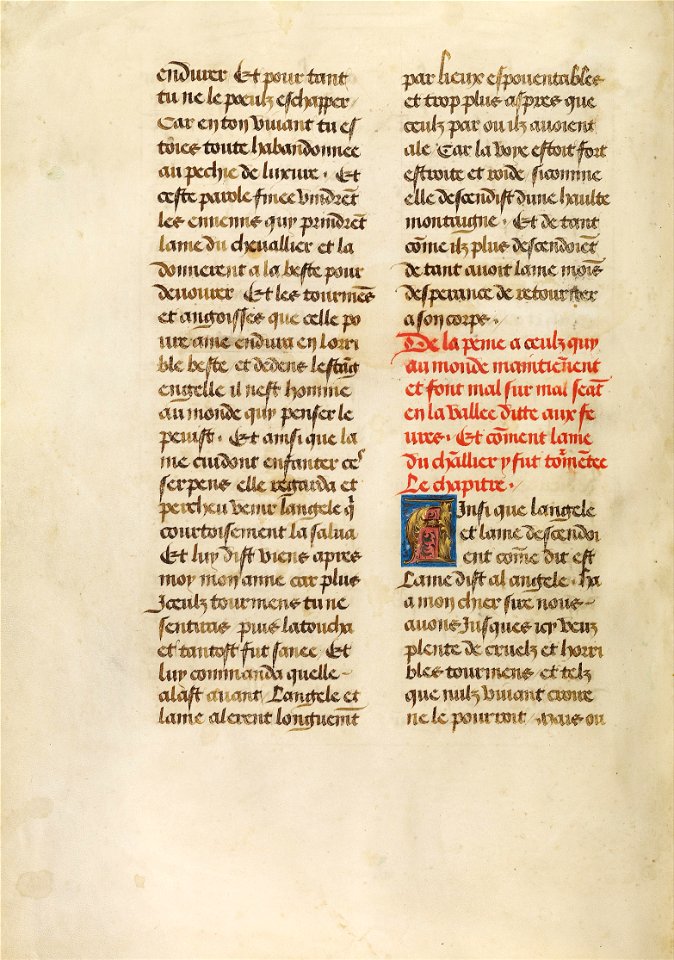 endurer Et pour tant
tu ne le poeulz eschapper
Car en ton viuant tu es
toies toute habandonnee
au pechie de luxure . Et
ceste parole finee vindrēt
les ennemis quy prindrēt
lame du chevallier et la
donnerent a la beste pour
deuourer Et les tourmēs
et angoisses que celle po
ure ame endura en lorri
ble beste et dedens lestāg
engelle il nest homme
au monde quy penser le
peuist . Et ainsi que la
me cuidont enfanter ces
serpens elle regarda et
percheu venir langele q̄
courtoisement la salua
Et luy dist viens apres
moy mon amie car plus
Iceulz tourmens tu ne
sentiras puis la toucha
et tantost fut sanee Et
luy commanda quelle
alast auant Langele et
lame alerent longuemēt
par lieux espouentables
et trop plus aspres que
ceulz par ou ilz auoient
ale Car la voye estoit fort
estroite et roide sicomme
elle descendist dune haulte
montaigne . Et de tant
cōme ilz plus descendoiēt
de tant auoit lame moīs
desperance de retourner
a son corps .
De la peine a ceulz quy
au monde maintiēnent
et font mal sur mal seāt
en la vallee ditte aux fe
ures . Et cōment lame
du chāllier y fut tormētee
Le chapitre .
Ainsi que langele
et lame descendoi
ent cōme dit est
Lame dist al angele . ha
a mon chier sire nous
auons Jusques icy veuz
plente de cruelz et horri
bles tourmens et telz
que nulz viuant croire
ne le pourroit mais ou